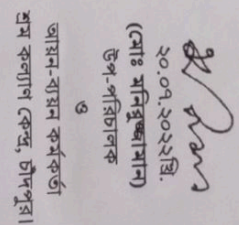 ২০.০৭.২০২২খ্রি.
(মোঃ মনিরুজ্জামান)
উপ-পরিচালক
ও
আয়ন-ব্যয়ন কর্মকর্তা
শ্রম কল্যাণ কেন্দ্র, চাঁদপুর।